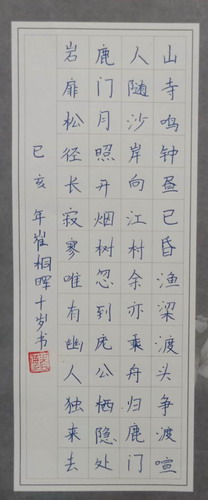 山寺鸣钟昼已昏渔梁渡头争渡喧
人随沙岸向江村余亦乘舟归鹿门
鹿门月照开烟树忽到庞公栖隐处
岩扉松径长寂寥唯有幽人独来去
己亥年崔桐晖十岁书